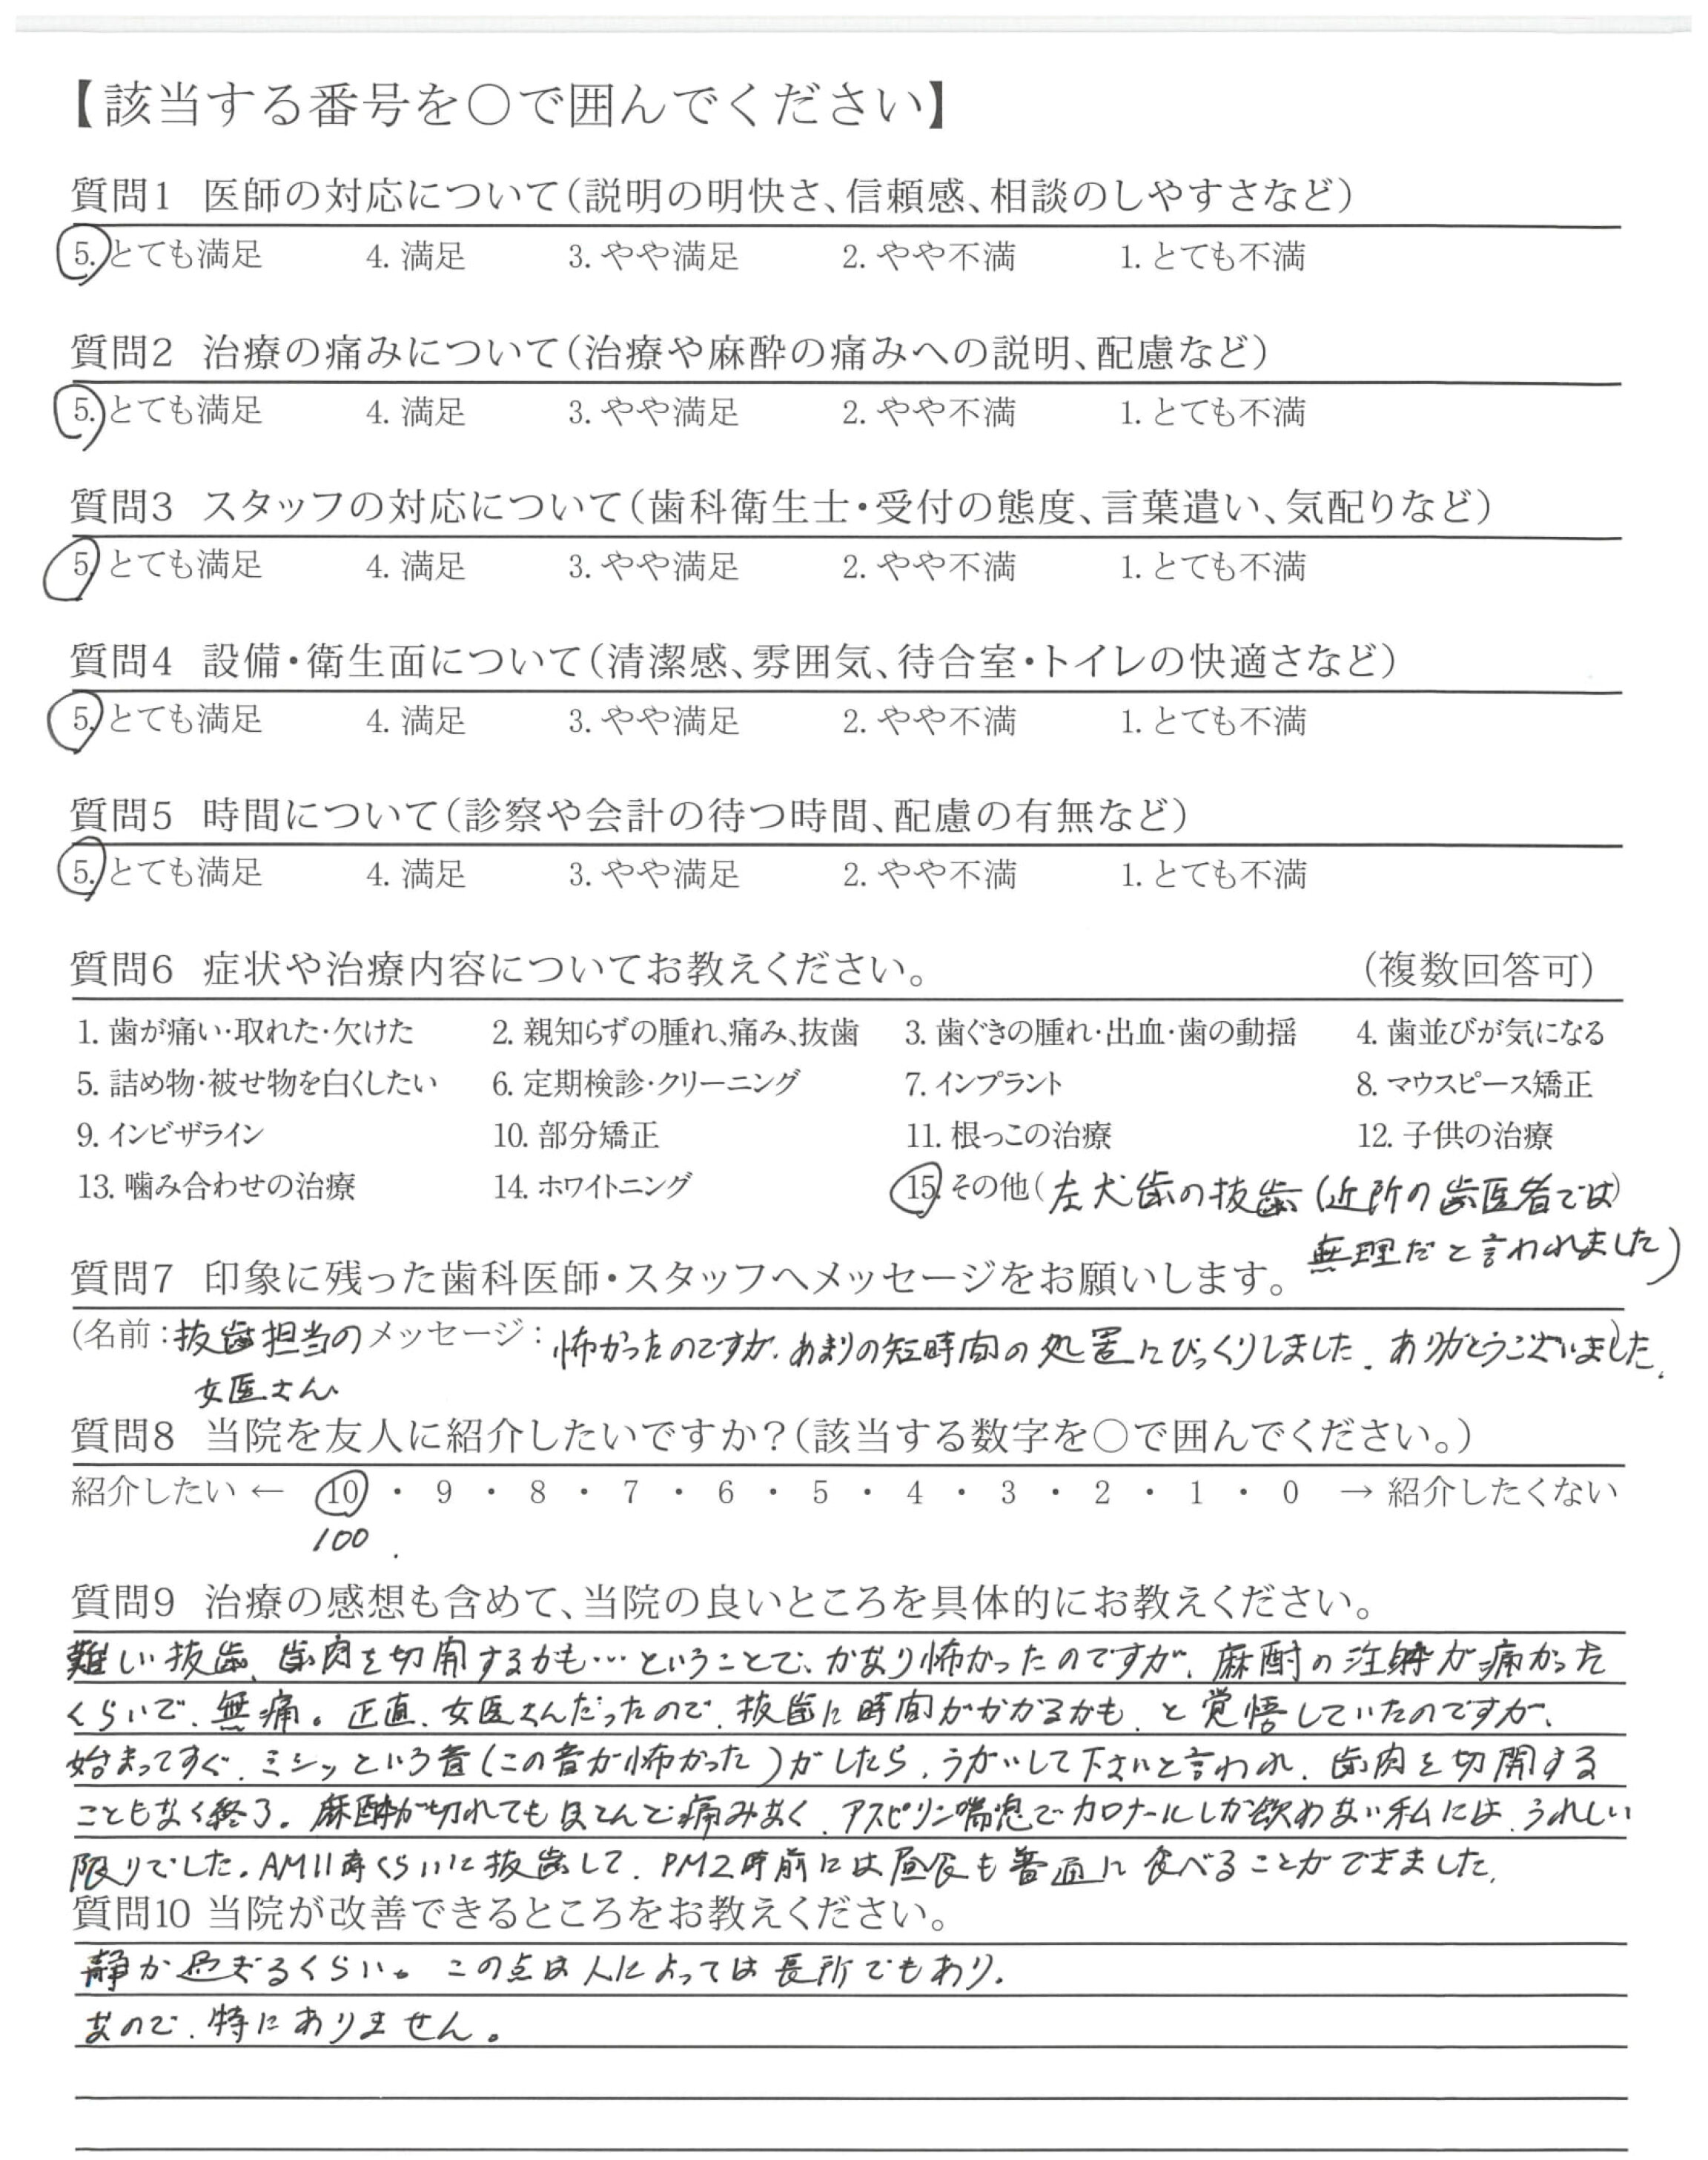 【該当する番号を○で囲んでください】
質問1 医師の対応について(説明の明快さ、信頼感、相談のしやすさなど)
5. とても満足 4. 満足 3. やや満足 2. やや不満 1. とても不満
質問2 治療の痛みについて(治療や麻酔の痛みへの説明、配慮など)
5. とても満足 4. 満足 3. やや満足 2. やや不満 1. とても不満
質問3 スタッフの対応について(歯科衛生士・受付の態度、言葉遣い、気配りなど)
5. とても満足 4. 満足 3. やや満足 2. やや不満 1. とても不満
質問4 設備・衛生面について(清潔感、雰囲気、待合室・トイレの快適さなど)
5. とても満足 4. 満足 3. やや満足 2. やや不満 1. とても不満
質問5 時間について(診察や会計の待つ時間、配慮の有無など)
5. とても満足 4. 満足 3. やや満足 2. やや不満 1. とても不満
質問6 症状や治療内容についてお教えください。 (複数回答可)
1. 歯が痛い・取れた・欠けた 2. 親知らずの腫れ、痛み、抜歯 3. 歯ぐきの腫れ・出血・歯の動揺 4. 歯並びが気になる
5. 詰め物・被せ物を白くしたい 6. 定期検診・クリーニング 7. インプラント 8. マウスピース矯正
9. インビザライン 10. 部分矯正 11. 根っこの治療 12. 子供の治療
13. 噛み合わせの治療 14. ホワイトニング 15. その他(左犬歯の抜歯(近所の歯医者では)
無理だと言われました)
質問7 印象に残った歯科医師・スタッフへメッセージをお願いします。
(名前:抜歯担当の メッセージ:怖かったのですが、あまりの短時間の処置にびっくりしました。ありがとうございました。)
女医さん
質問8 当院を友人に紹介したいですか?(該当する数字を○で囲んでください。)
紹介したい ← 10 ・ 9 ・ 8 ・ 7 ・ 6 ・ 5 ・ 4 ・ 3 ・ 2 ・ 1 ・ 0 → 紹介したくない
100.
質問9 治療の感想も含めて、当院の良いところを具体的にお教えください。
難しい抜歯、歯肉を切開するかも…ということで、かなり怖かったのですが、麻酔の注射が痛かった
くらいで、無痛。正直、女医さんだったので、抜歯に時間がかかるかも、と覚悟していたのですが、
始まってすぐ、ミシッという音(この音が怖かった)がしたら、うがいして下さいと言われ、歯肉を切開する
こともなく終了。麻酔が切れてもほとんど痛みなく、アスピリン喘息でカロナールしか飲めない私には、うれしい
限りでした。AM11時くらいに抜歯して、PM2時前には昼食も普通に食べることができました。
質問10 当院が改善できるところをお教えください。
静か過ぎるくらい。この点は人によっては長所でもあり。
なので、特にありません。